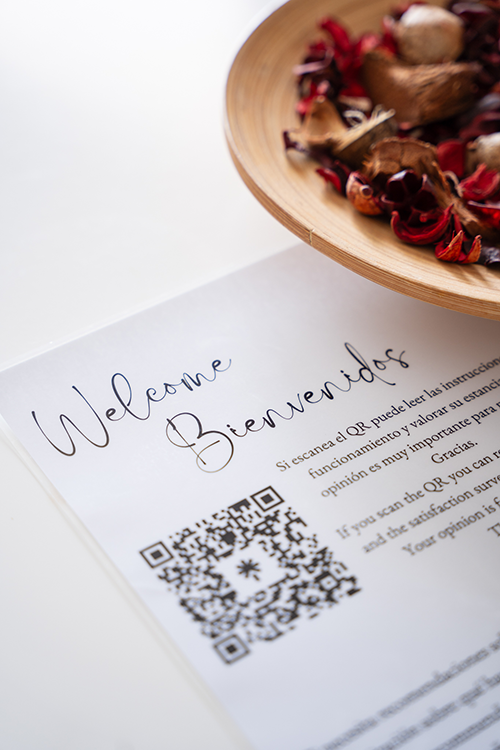 Welcome
Bienvenidos
Si escanea el QR puede leer las instruccion
funcionamiento y valorar su estanci
opinión es muy importante para
Gracias.
If you scan the QR you can re
and the satisfaction surve
Your opinion is
T